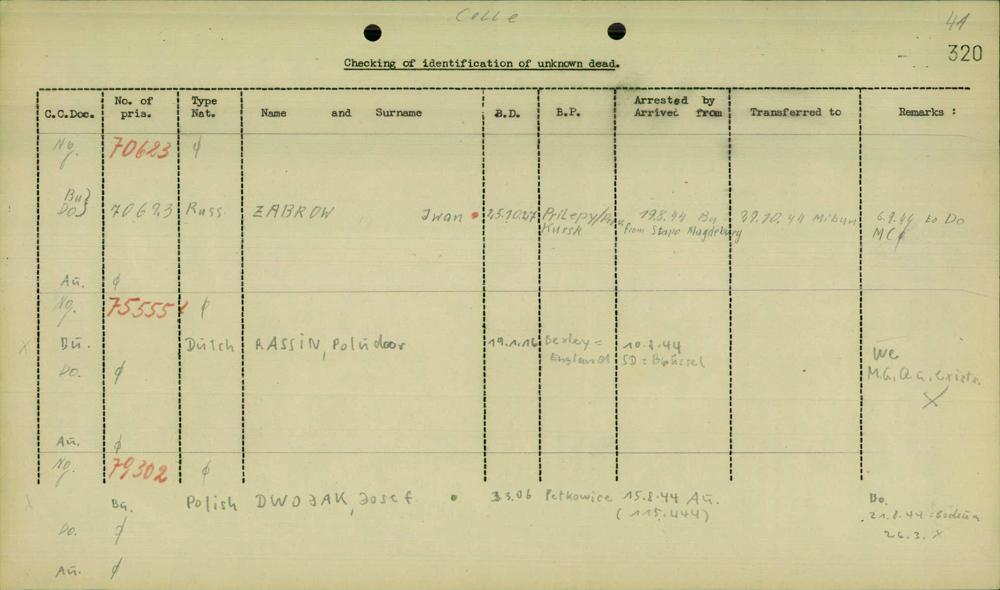 Celle
44
320
Checking of identification of unknown dead.
C.C.Doc. No. of pris. Type Nat. Name and Surname B.D. B.P. Arrested by Arrived from Transferred to Remarks :
Ng. 70623 ∅
Bu} Do} 70693 Russ. ZABROW Iwan 25.10.27 Prilepy/ Kursk 19.8.44 Bu from Stapo Magdeburg 10.44 6.9.44 to Do
MC∅
Au. ∅
Ng. 75555 ∅
x Bu. Dutch RASSIN, Polydoor 19.1.16 Bexley = England 10.8.44 SD = Brüssel We
Do. ∅ M.G.Q.G. exists.
X
Au. ∅
Ng. 79302 ∅
x Bu. Polish DWOJAK, Josef 3.3.06 Petkowice 15.8.44 Au. Bo.
(115.444) 21.8.44 = Bochum
Do. ∅ 26.3. X
Au. ∅